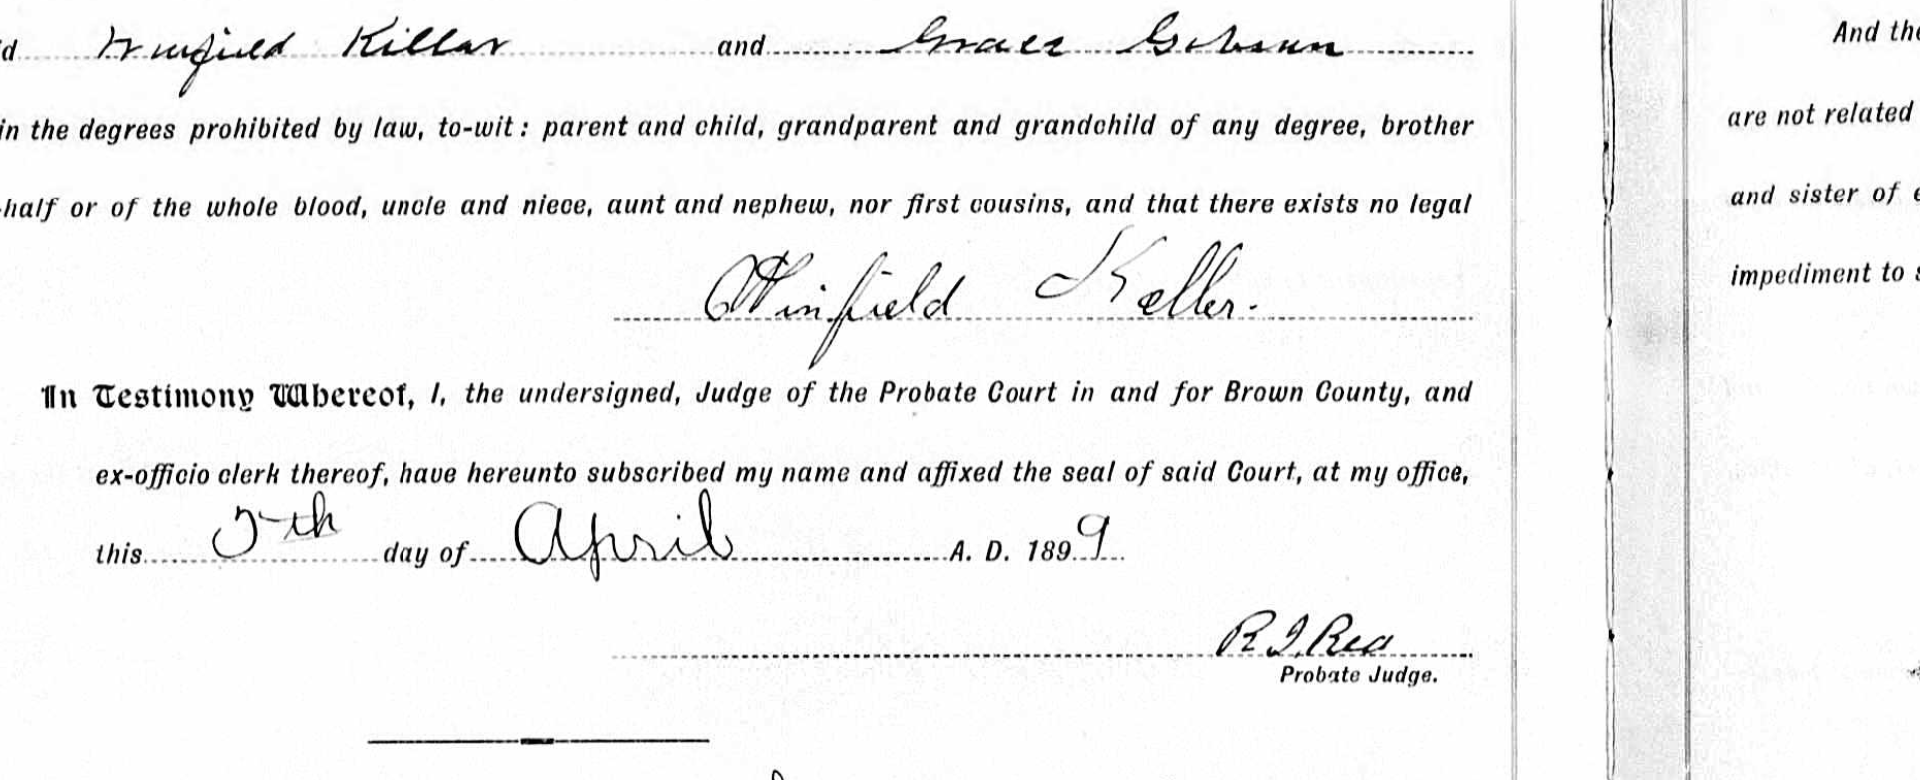 d Winfield Killar and Grace Gibson
in the degrees prohibited by law, to-wit: parent and child, grandparent and grandchild of any degree, brother
half or of the whole blood, uncle and niece, aunt and nephew, nor first cousins, and that there exists no legal
Winfield Keller.
In Testimony Whereof, I, the undersigned, Judge of the Probate Court in and for Brown County, and
ex-officio clerk thereof, have hereunto subscribed my name and affixed the seal of said Court, at my office,
this 5th day of April A. D. 1899
R. I. Rea
Probate Judge.
And the
are not related
and sister of
impediment to s